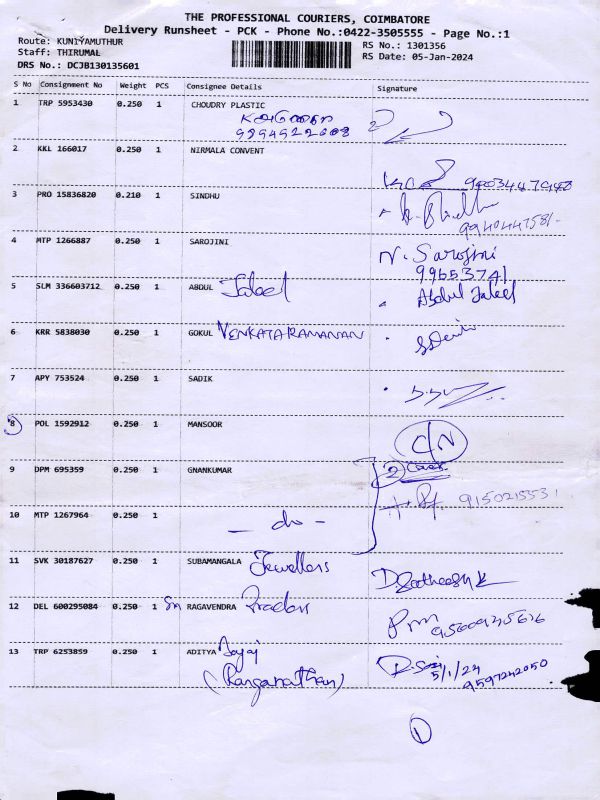 THE PROFESSIONAL COURIERS, COIMBATORE
Delivery Runsheet - PCK - Phone No.:0422-3505555 - Page No.:1
Route: KUNIYAMUTHUR
Staff: THIRUMAL
DRS No.: DCJB130135601
RS No.: 1301356
RS Date: 05-Jan-2024
S No Consignment No Weight PCS Consignee Details Signature
1 TRP 5953430 0.250 1 CHOUDRY PLASTIC
2 KKL 166017 0.250 1 NIRMALA CONVENT
3 PRO 15836820 0.210 1 SINDHU
4 MTP 1266887 0.250 1 SAROJINI N. Sarojini
99653741
5 SLM 336603712 0.250 1 ABDUL Jaleel Abdul Jaleel
6 KRR 5838030 0.250 1 GOKUL VENKATARAMANAN
7 APY 753524 0.250 1 SADIK
8 POL 1592912 0.250 1 MANSOOR C/N
9 DPM 695359 0.250 1 GNANKUMAR 2 Cover
10 MTP 1267964 0.250 1 - do -
11 SVK 30187627 0.250 1 SUBAMANGALA Jewellers D.Satheesh K
12 DEL 600295084 0.250 1 Sri RAGAVENDRA Traders
13 TRP 6253859 0.250 1 ADITYA
(Ranganathan)
5/1/24
9597242050
1